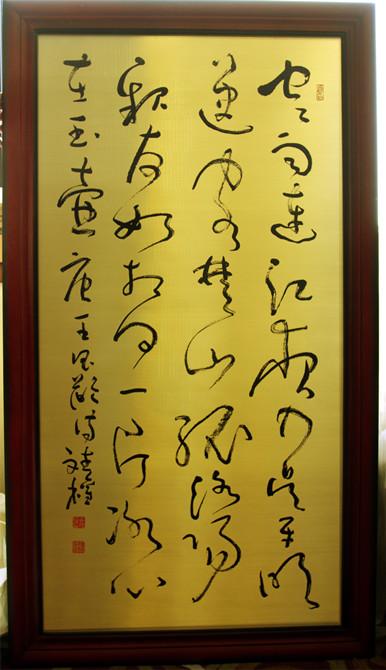 寒雨連江夜入吳平明
送客楚山孤洛陽
親友如相問一片冰心
在玉壺唐王昌齡詩